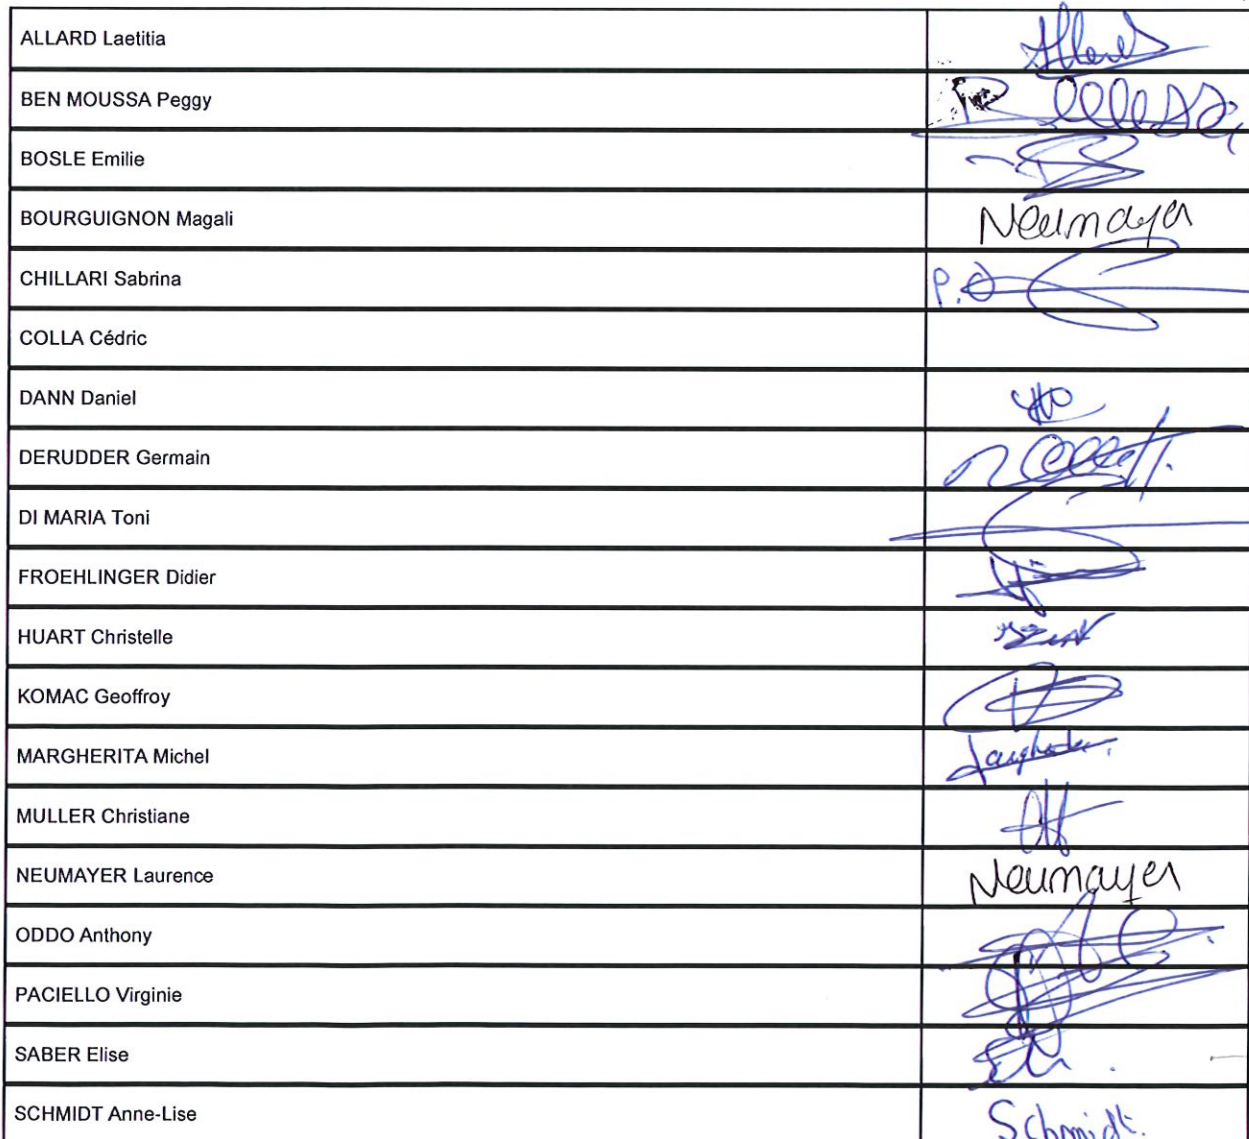 ALLARD Laetitia Allard
BEN MOUSSA Peggy
BOSLE Emilie
BOURGUIGNON Magali Neumayer
CHILLARI Sabrina P.O
COLLA Cédric
DANN Daniel
DERUDDER Germain
DI MARIA Toni
FROEHLINGER Didier
HUART Christelle
KOMAC Geoffroy
MARGHERITA Michel
MULLER Christiane
NEUMAYER Laurence Neumayer
ODDO Anthony
PACIELLO Virginie
SABER Elise
SCHMIDT Anne-Lise Schmidt.